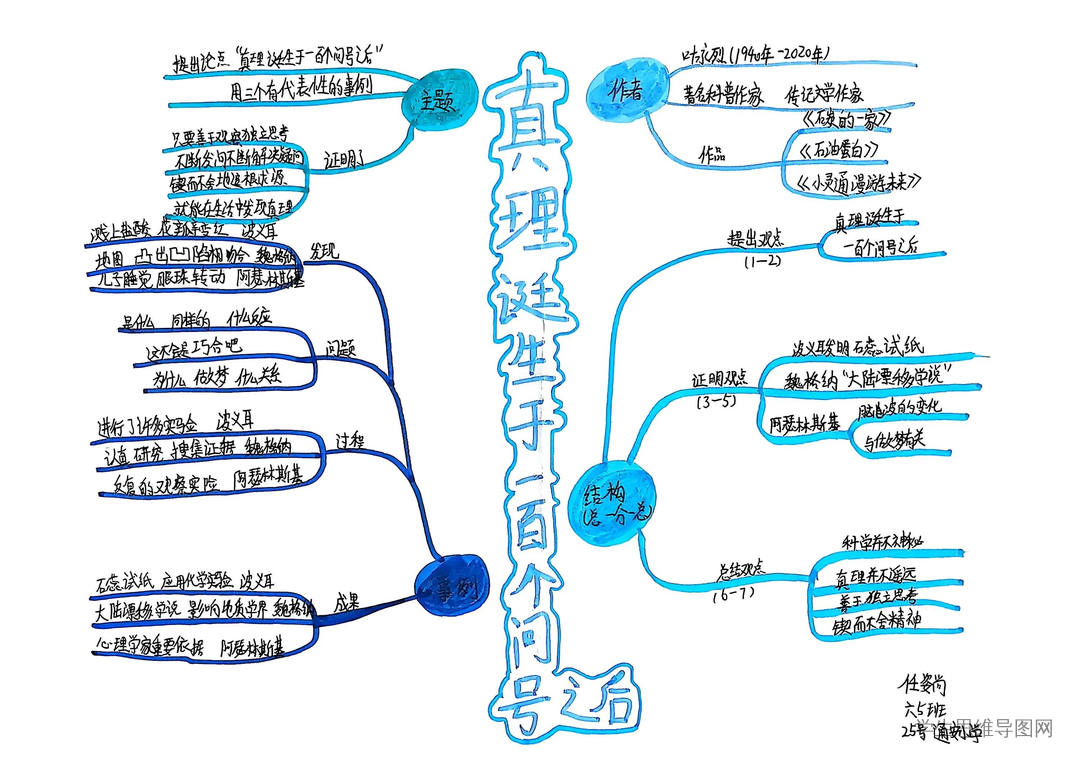 真理诞生于一百个问号之后
主题
提出论点"真理诞生于一百个问号之后"
用三个有代表性的事例
证明了
只要善于观察独立思考
不断发问不断解决疑问
锲而不舍地追根求源
就能在生活中发现真理
作者
叶永烈(1940年-2020年)
著名科普作家 传记文学作家
作品
《石炭的一家》
《石油蛋白》
《小灵通漫游未来》
结构
(总-分-总)
提出观点
(1-2)
真理诞生于
一百个问号之后
证明观点
(3-5)
波义耳发明石蕊试纸
魏格纳"大陆漂移学说"
阿瑟林斯基
脑电波的变化
与做梦有关
总结观点
(6-7)
科学并不神秘
真理并不遥远
善于独立思考
锲而不舍精神
事例
发现
溅上盐酸 花瓣变红 波义耳
地图 凸出凹陷相吻合 魏格纳
儿子睡觉 眼珠转动 阿瑟林斯基
问题
是什么 同样的 什么反应
这不会是巧合吧
为什么 做梦 什么关系
过程
进行了许多实验 波义耳
认真研究 搜集证据 魏格纳
反复的观察实验 阿瑟林斯基
成果
石蕊试纸 应用化学实验 波义耳
大陆漂移学说 影响地质学界 魏格纳
心理学家重要依据 阿瑟林斯基
任姿尚
六5班
25号
思维导图网